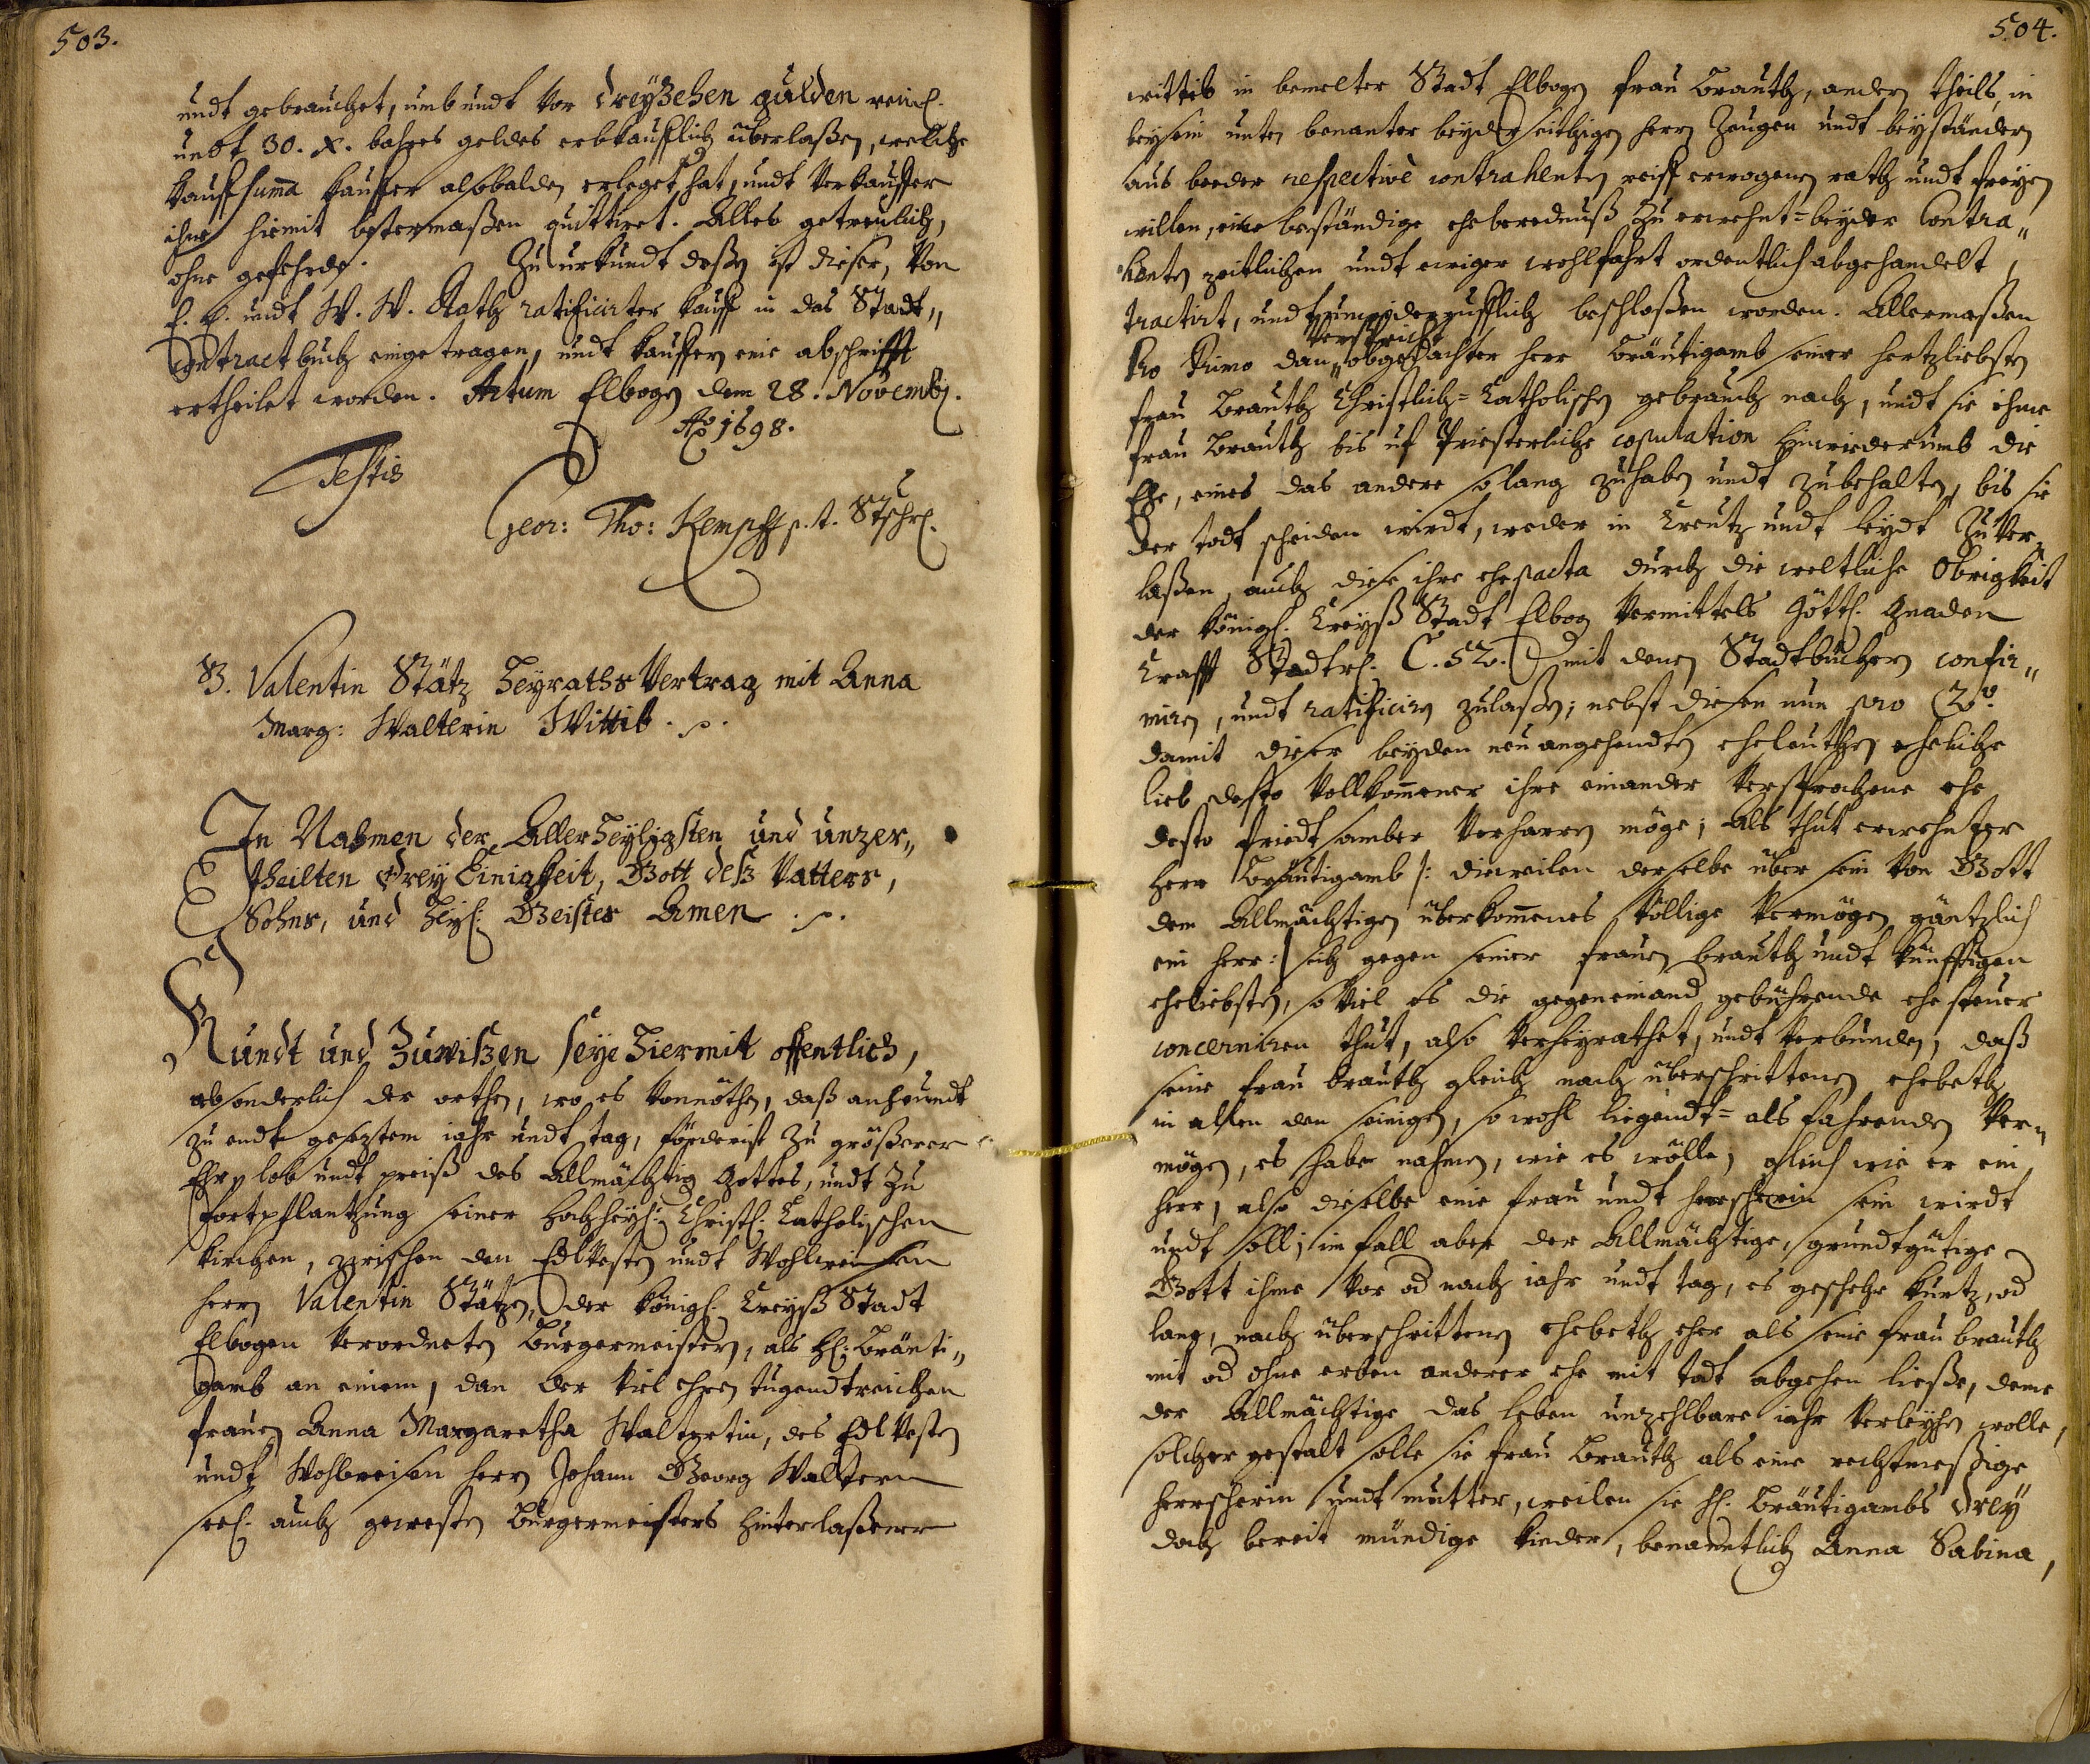 503.
undt gebrauchet, umb undt vor dreyzehen gulden reinl.
undt 30. x. bahres geldes erbkaufflich überlaßen, welche
kauffsumma kauffer alsobalden erleget hat, undt verkauffer
ihne hiemit bestermaßen quittiret. Alles getreulich,
ohne gefehrde. Zu urkundt deßen ist dieser, von
E. E. undt W. W. Rath ratificirter kauff in das Stadt„
Contractbuch eingetragen, undt kauffern eine abschrifft
ertheilet worden. Actum Elbogen dem 28. Novembr.
Ao 1698.
Testis
Geor: Tho: Kempff p. t. Stschr.
B. Valentin Stätz Heyraths Vertrag mit Anna
Marg: Walterin Wittib.
In Nahmen der Allerheyligsten und unzer„
theilten Drey Einigkeit, Gott deß Vatters,
Sohns, und Heyl: Geistes Amen.
Kundt und Zuwißen seye hiermit offentlich,
absonderlich der orthen, wo es vonnöthen, daß an heundt
zu endt geseztem iahr undt tag, förderist zu größerer
Ehr, lob undt preiß des Allmächtig Gottes, undt zu
fortpflantzung seiner hochheyl: Christl. Catholischen
kirchen, zwischen den Edlvesten undt Wohlweisen
herrn Valentin Stätzen, der königl. Creyß Stadt
Elbogen verordneten Burgermeistern, als H. Bräuti„
gamb an einem, dan der viel ehren tugendtreichen
frauen Anna Margaretha Walterin, des Edlvesten
undt Wohlweisen herrn Johann Georg Waltern
seel. auch gewesten Burgermeisters hinterlaßener
504.
wittib in bemelter Stadt Elbogen frau Brauth, andern theils, in
beysein unten benanter beyderseithigen herrn Zeugen undt beyständern
aus beeder respectivè contrahenten reiff erwogenen rath undt freyen
willen, eine beständige eheberednuß zu erwehnt=beyder Contra„
henten zeitlichen undt ewiger wohlfahrt ordentlich abgehandelt,
tractirt, undt unwiderrufflich beschloßen worden. Allermaßen
verspricht
Pro Primo dan„ obgedachter herr Bräutigamb seiner hertzliebsten
frau Brauth Christlich=Catholischen gebrauch nach, undt sie ihme
frau Brauth bis uf Priesterliche copulation hinwiederumb die
Ehe, eines das andere solang zuhaben undt zubehalten, bis sie
der todt scheiden wirdt, weder in Creutz undt leydt zuver„
laßen, auch diese ihre ehepacta durch die weltliche Obrigkeit
der königl. Creyß Stadt Elbog vermittels Göttl. gnaden
Crafft Stadtrl. C. 52. mit denen Stadtbüchern confir„
miren, undt ratificiren zulaßen; nebst diesen nun pro 2do.
damit dieser beyden neu angehendten eheleuthen eheliche
lieb desto vollkommener ihre einander versprochene ehe
desto friedtsamber verharren möge; Als thut erwehnter
herr Bräutigamb /: dieweilen derselbe über sein von Gott
dem Allmächtigen überkommenes völlige vermögen gäntzlich
ein herr :/ sich gegen seiner frauen brauth undt künfftigen
eheliebsten, so viel es die gegeneinand gebührende ehesteuer
concerniren thut, also verheyrathet, undt verbunden, daß
seine frau brauth gleich nach überschrittenen ehebeth
in allen den seinigen, sowohl liegendt= als fahrenden ver„
mögen, es habe nahmen, wie es wölle, gleich wie er ein
herr, also dieselbe eine frau undt herrscherin sein wirdt
undt soll; im fall aber der Allmächtige, grundtgütige
Gott ihme vor od nach iahr undt tag, es geschehe kurtz, od
lang, nach überschrittenen ehebeth eher als seine frau brauth
mit od ohne erben anderer ehe mit todt abgehen ließe, deme
der Allmächtige das leben unzehlbare iahr verleyhen wolle,
solcher gestalt solle sie frau Brauth als eine rechtmeßige
herrscherin undt mutter, weilen sie H. Bräutigambs drey
doch bereit mündige kinder, benanntlich Anna Sabina,